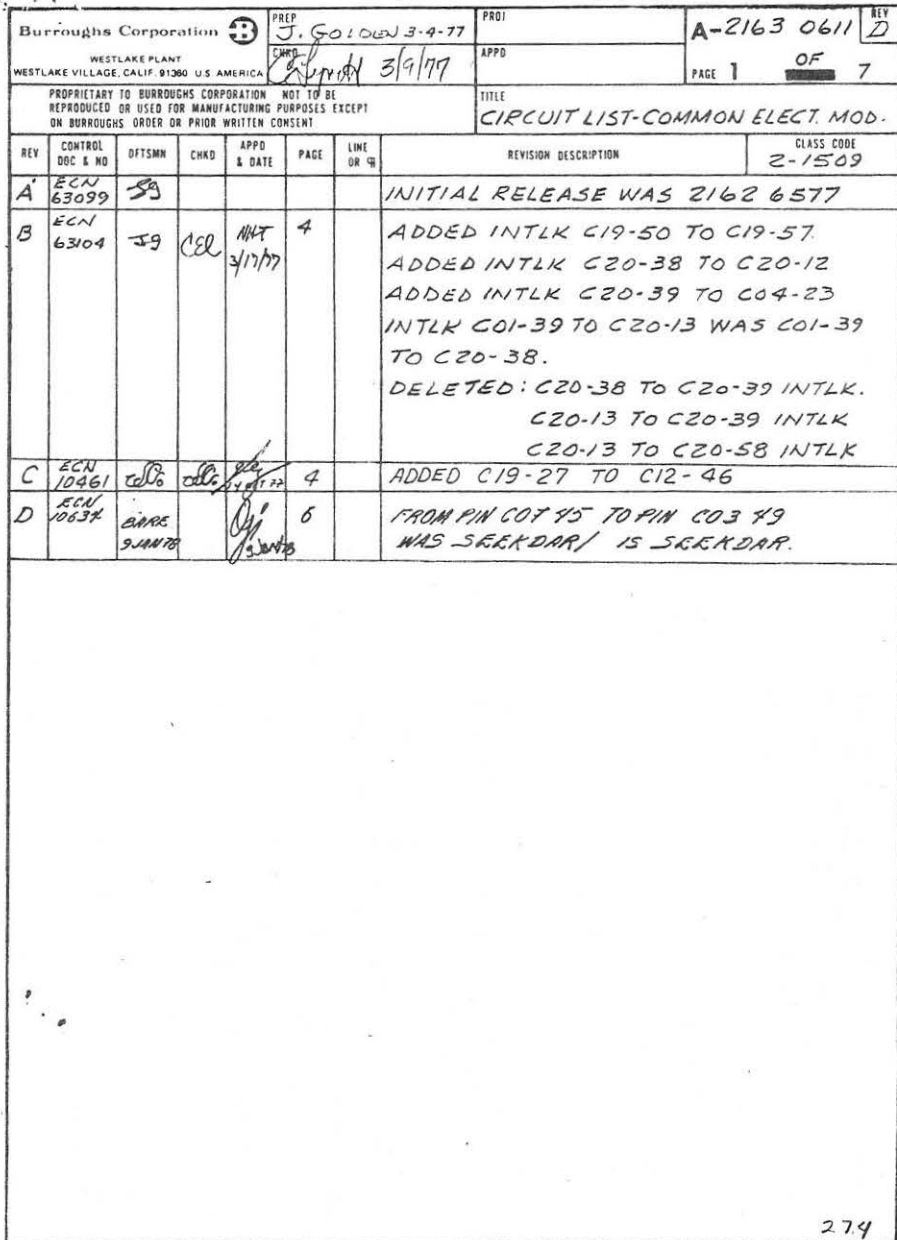 Burroughs Corporation B
WESTLAKE PLANT
WESTLAKE VILLAGE, CALIF. 91360 U.S. AMERICA
PREP
J. GOLDEN 3-4-77
CHKD
3/9/77
PROJ
APPD
A-2163 0611
REV
D
PAGE 1 OF 7
PROPRIETARY TO BURROUGHS CORPORATION NOT TO BE
REPRODUCED OR USED FOR MANUFACTURING PURPOSES EXCEPT
ON BURROUGHS ORDER OR PRIOR WRITTEN CONSENT
TITLE
CIRCUIT LIST-COMMON ELECT. MOD.
REV CONTROL DOC & NO DFTSMN CHKD APPD & DATE PAGE LINE OR REVISION DESCRIPTION CLASS CODE
2-1509
A ECN 63099 JG INITIAL RELEASE WAS 2162 6577
B ECN 63104 JG CEL 3/17/77 4 ADDED INTLK C19-50 TO C19-57.
ADDED INTLK C20-38 TO C20-12
ADDED INTLK C20-39 TO C04-23
INTLK C01-39 TO C20-13 WAS C01-39
TO C20-38.
DELETED: C20-38 TO C20-39 INTLK.
C20-13 TO C20-39 INTLK
C20-13 TO C20-58 INTLK
C ECN 10461 4 ADDED C19-27 TO C12-46
D ECN 10634 BARE 9JAN78 6 FROM PIN C07 45 TO PIN C03 49
WAS SEEKDAR/ IS SEEKDAR.
274